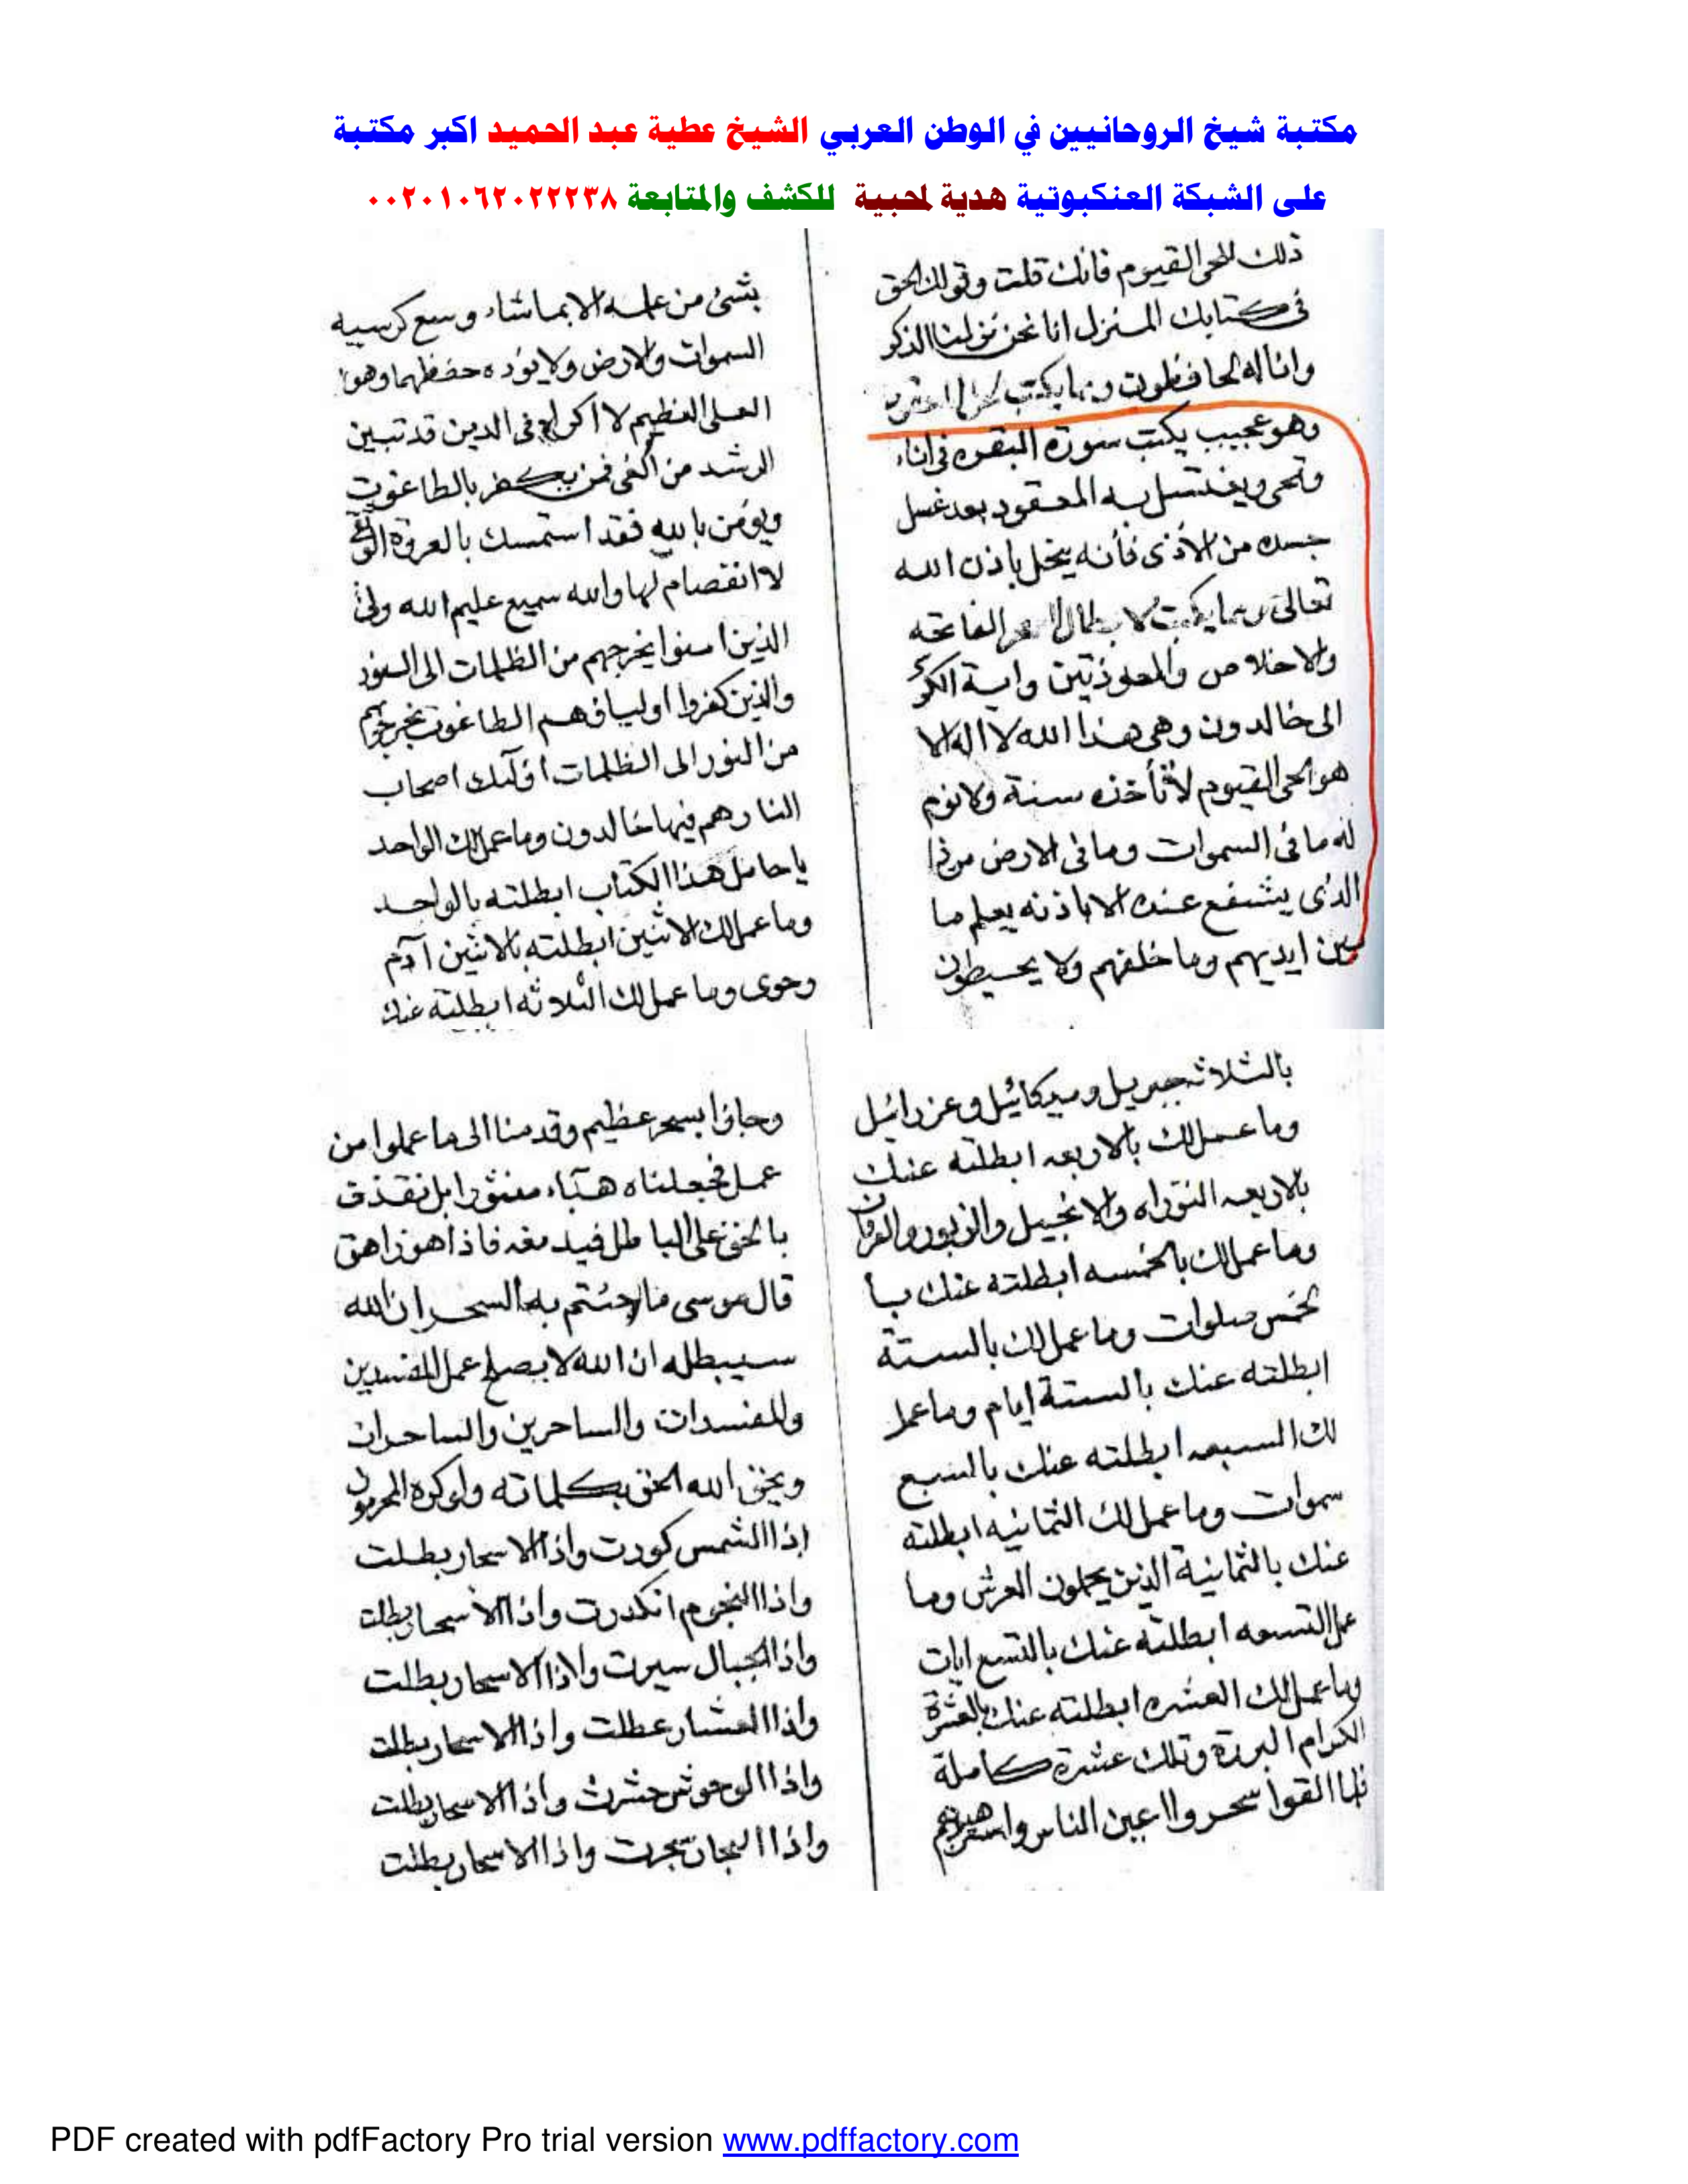 مكتبة شيخ الروحانيين في الوطن العربي الشيخ عطية عبد الحميد اكبر مكتبة
على الشبكة العنكبوتية هدية لمحبية للكشف والمتابعة ٠٠٢٠١٠٦٢٠٢٢٢٣٨
ذلك للحى القيوم فانك قلت وقولك الحق
فى كتابك المنزل انا نحن نزلنا الذكر
وانا له لحافظون ومما يكتب
وهو عجيب يكتب سورة البقره فى اناء
وتمحى ويغتسل به المعقود بعد غسل
جسده من الأذى فأنه ينحل باذن الله
تعالى ومما يكتب لابطال السحر الفاتحه
والاخلاص والمعوذتين واية الكرسى
الى خالدون وهى هذا الله لا اله الا
هو الحى القيوم لا تأخذه سنة ولا نوم
له ما فى السموات وما فى الارض من ذا
الذى يشفع عنده الا باذنه يعلم ما
بين ايديهم وما خلفهم ولا يحيطون
بشئ من علمه الا بما شاء وسع كرسيه
السموات والارض ولا يؤده حفظهما وهو
العلى العظيم لا اكراه فى الدين قد تبين
الرشد من الغى فمن يكفر بالطاغوت
ويؤمن بالله فقد استمسك بالعروة الوثقى
لا انفصام لها والله سميع عليم الله ولى
الذين امنوا يخرجهم من الظلمات الى النور
والذين كفروا اولياؤهم الطاغوت يخرجهم
من النور الى الظلمات أولئك اصحاب
النار هم فيها خالدون وما عمل لك الواحد
يا حامل هذا الكتاب ابطلته بالواحد
وما عمل لك الاثنين ابطلته بالاثنين آدم
وحوى وما عمل لك الثلاثه ابطلته عنك
بالثلاثه جبريل وميكائيل وعزرائيل
وما عمل لك بالاربعه ابطلته عنك
بالاربعه التوراه والانجيل والزبور والفرقان
وما عمل لك بالخمسه ابطلته عنك با
لخمس صلوات وما عمل لك بالستة
ابطلته عنك بالستة إيام وما عمل
لك السبعه ابطلته عنك بالسبع
سموات وما عمل لك الثمانيه ابطلته
عنك بالثمانية الذين يحملون العرش وما
عمل التسعه ابطلته عنك بالتسع ايات
وما عمل لك العشره ابطلته عنك بالعشرة
الكرام البررة وتلك عشرة كاملة
فلما القوا سحروا اعين الناس واسترهبوهم
وجاؤا بسحر عظيم وقدمنا الى ما عملوا من
عمل فجعلناه هبآء منثورا بل نقذف
بالحق على الباطل فيدمغه فاذا هو زاهق
قال موسى ما جئتم به السحر ان الله
سيبطله ان الله لا يصلح عمل المفسدين
والمفسدات والساحرين والساحرات
ويحق الله الحق بكلماته ولو كره المجرمون
إذا الشمس كورت واذا الاسحار بطلت
واذا النجوم انكدرت واذا الأسحار بطلت
واذا الجبال سيرت واذا الاسحار بطلت
واذا العشار عطلت واذا الاسحار بطلت
واذا الوحوش حشرت واذا الاسحار بطلت
واذا البحار سجرت واذا الاسحار بطلت
PDF created with pdfFactory Pro trial version www.pdffactory.com